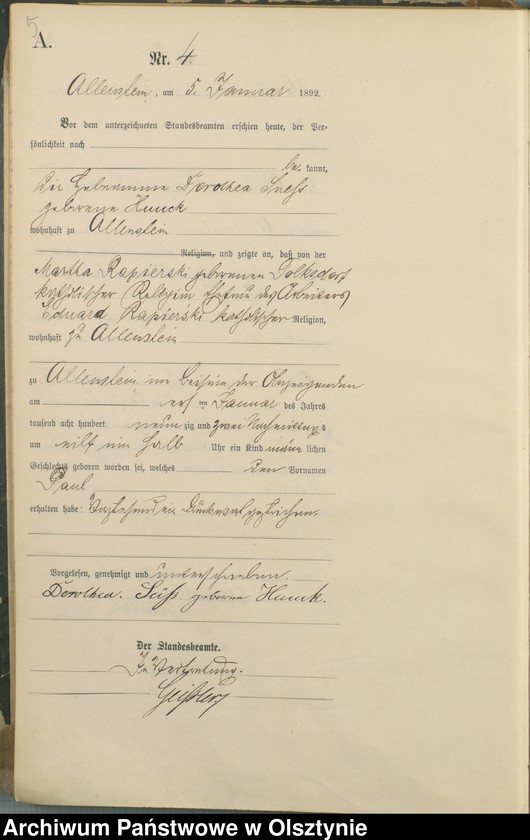 5
A.
Nr. 4.
Allenstein, am 5. Januar 1892.
Vor dem unterzeichneten Standesbeamten erschien heute, der Per=
sönlichkeit nach
be kannt,
die Hebeamme Dorothea Suess
geborene Hauck
wohnhaft zu Allenstein
Religion, und zeigte an, daß von der
Martha Rapierski geborenen Golksdorf
katholischer Religion Ehefrau des Arbeiters
Eduard Rapierski katholischer Religion,
wohnhaft zu Allenstein
zu Allenstein im Beisein der Anzeigenden
am ersten Januar des Jahres
tausend acht hundert neun zig und zwei Nachmittags
um eilf ein halb Uhr ein Kind männ lichen
Geschlechts geboren worden sei, welches den Vornamen
Paul
erhalten habe. Vorstehend ein Druckwort gestrichen.
Vorgelesen, genehmigt und unterschrieben.
Dorothea Süss geborene Hauck.
Der Standesbeamte.
In Vertretung.
Archiwum Państwowe w Olsztynie